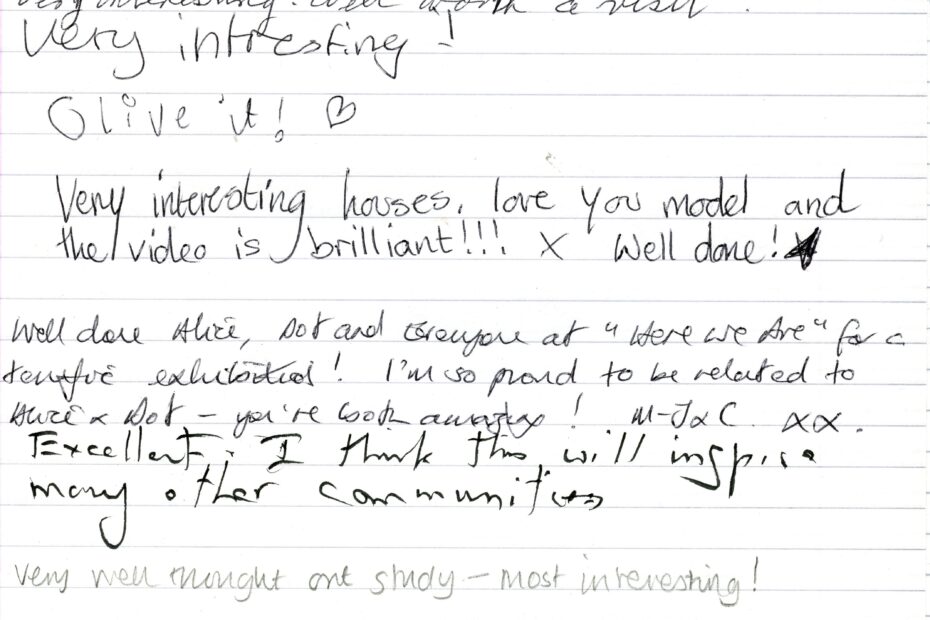 very interesting. Well worth a visit.
Very intresting!
Olive it! ♡
Very interesting houses, love you model and
the video is brilliant!!! X Well done!
Well done Alice, Dot and everyone at "Here We Are" for a
exhibition! I'm so proud to be related to
Alice & Dot – you're both amazing! M-J & C. XX.
Excellent. I think this will inspire
many other communities
very well thought out study – most interesting!